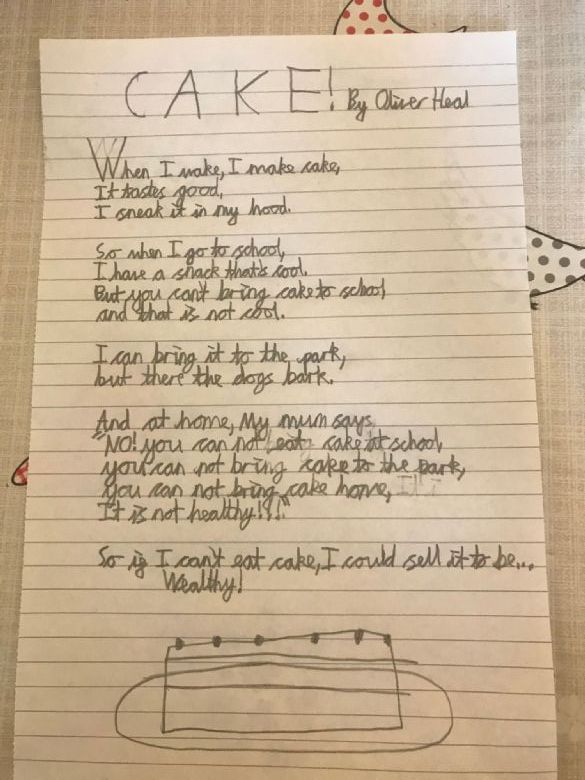 CAKE! By Oliver Heal
When I wake, I make cake,
It tastes good,
I sneak it in my hood.
So when I go to school,
I have a snack that's cool.
But you can't bring cake to school,
and that is not cool.
I can bring it to the park,
but there the dogs bark.
And at home, My mum says,
"NO! you can not eat cake at school,
you can not bring cake to the park,
you can not bring cake home,
It is not healthy!!!"
So if I can't eat cake, I could sell it to be...
Wealthy!